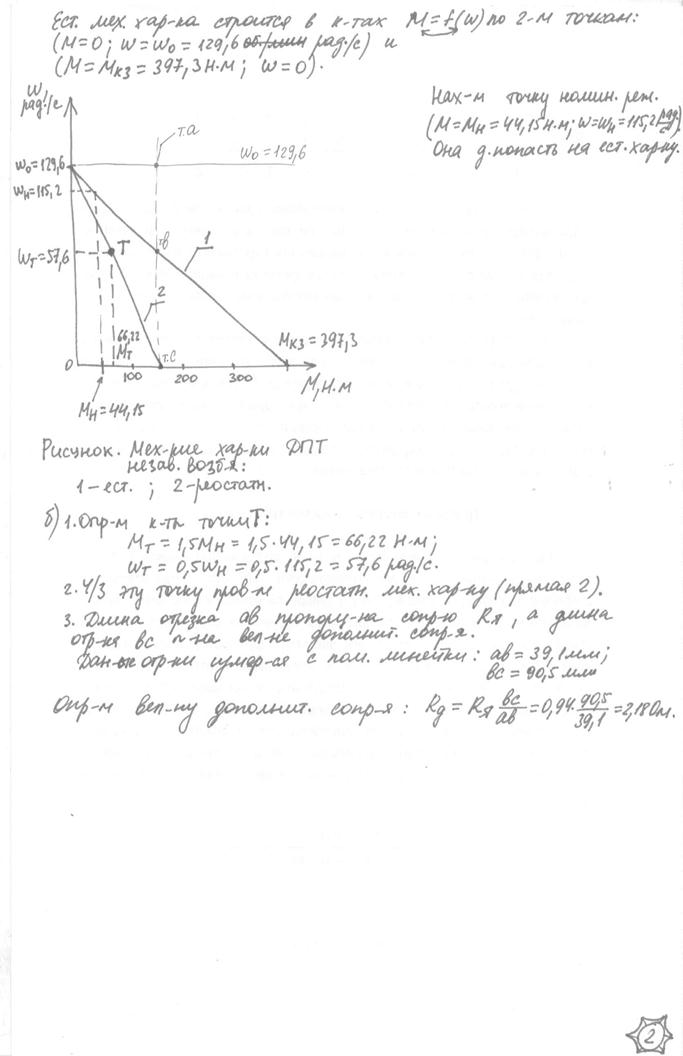 Ест. мех. хар-ка строится в к-тах M = f(w) по 2-м точкам:
(M=0; w=w₀=129,6 об/мин рад/с) и
(M=Mкз=397,3 Н·м; w=0).
Нах-м точку номин. реж.
(M=Mн=44,15 Н·м; w=wн=115,2 рад/с).
Она д. попасть на ест. хар-ку.
w,
рад/с
т.a
w₀=129,6
w₀=129,6
wн=115,2
тв
1
T
wт=57,6
2
66,22
Mт
т.c
Mкз=397,3
0
100 200 300
M, Н·м
Mн=44,15
Рисунок. Мех-кие хар-ки ДПТ
незав. возб-я:
1 – ест. ; 2 – реостатн.
б) 1. Опр-м к-ты точки T:
Mт = 1,5Mн = 1,5·44,15 = 66,22 Н·м;
wт = 0,5wн = 0,5·115,2 = 57,6 рад/с.
2. Ч/з эту точку пров-м реостатн. мех. хар-ку (прямая 2).
3. Длина отрезка ав пропорц-на сопр-ю Rя, а длина
отр-ка вс п-на вел-не дополнит. сопр-я.
Дан-ые отр-ки измер-ся с пом. линейки: ав = 39,1 мм;
вс = 90,5 мм
Опр-м вел-ну дополнит. сопр-я: Rд = Rя вс/ав = 0,94·90,5/39,1 = 2,18 Ом.
2